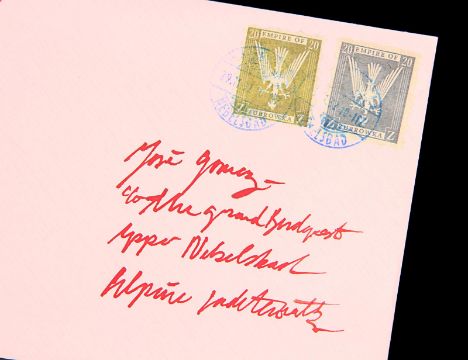 20 EMPIRE OF 20
ZUBROWKA Z
20 EMPIRE OF 20
ZUBROWKA Z
José Gomez –
c/o The grand Budapest
upper Nebelsbad
Alpine